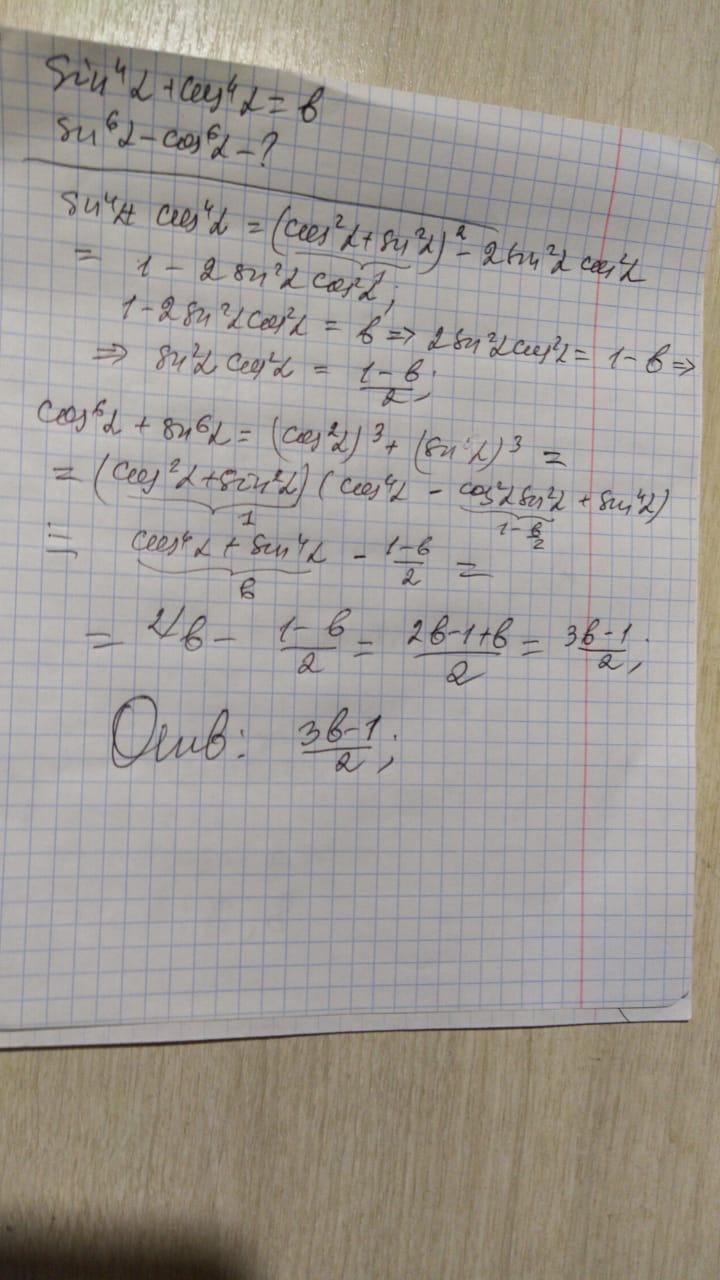 sin⁴α + cos⁴α = b
sin⁶α - cos⁶α - ?
sin⁴α + cos⁴α = (cos²α + sin²α)² - 2 sin²α cos²α
1
= 1 - 2 sin²α cos²α;
1 - 2 sin²α cos²α = b ⇒ 2 sin²α cos²α = 1 - b ⇒
⇒ sin²α cos²α = (1 - b)/2;
cos⁶α + sin⁶α = (cos²α)³ + (sin²α)³ =
= (cos²α + sin²α) (cos⁴α - cos²α sin²α + sin⁴α)
1 1 - b/2
= cos⁴α + sin⁴α - (1 - b)/2 =
b
= ²⁄b - (1 - b)/2 = (2b - 1 + b)/2 = (3b - 1)/2;
Отв: (3b - 1)/2;